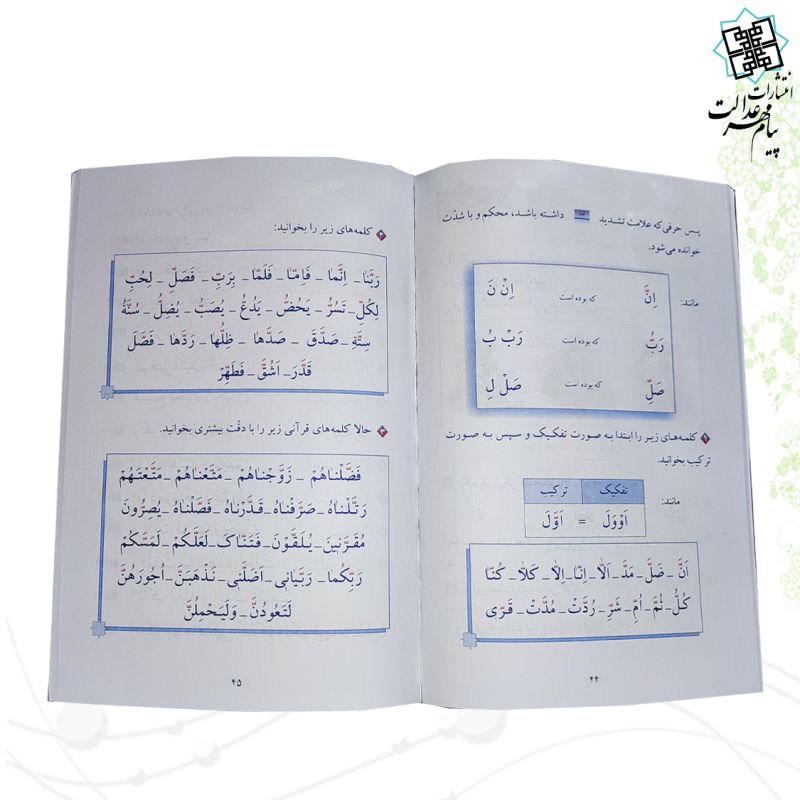 انتشارات
پیام مهر عدالت
پس حرفی که علامت تشدید ــّـ داشته باشد، محکم و با شدّت
خوانده می‌شود.
مانند: اِنَّ که بوده است اِنْ نَ
رَبُّ که بوده است رَبْ بُ
صَلِّ که بوده است صَلْ لِ
۱ کلمه‌های زیر را ابتدا به صورت تفکیک و سپس به صورت
ترکیب بخوانید.
تفکیک ترکیب
مانند: اَوْوَلَ = اَوَّلَ
اَنَّ ـ ضَلَّ ـ مَدَّ ـ اَلّا ـ اِنّا ـ اِلّا ـ کَلّا ـ کُنّا
کُلُّ ـ ثُمَّ ـ اُمِّ ـ شَرِّ ـ رُدَّتْ ـ مُدَّتْ ـ قَرّی
۴۴
۲ کلمه‌های زیر را بخوانید:
رَبَّنا ـ اِنَّما ـ فَاِمّا ـ فَلَمّا ـ بِرَبِّ ـ فَصَلِّ ـ لِحُبِّ
لِکُلِّ ـ تَسُرُّ ـ یَحُضُّ ـ یَدُعُّ ـ یُصَبُّ ـ یُضِلُّ ـ سُنَّةُ
سِتَّةِ ـ صَدَّقَ ـ صَدَّها ـ ظِلُّها ـ رَدَّها ـ فَصَّلَ
قَدَّرَ ـ اَشُقَّ ـ فَطَهِّرْ
۳ حالا کلمه‌های قرآنی زیر را با دقّت بیشتری بخوانید.
فَضَّلْناهُمْ ـ زَوَّجْناهُمْ ـ مَتَّعْناهُمْ ـ مَتَّعْتَهُمْ
رَتَّلْناهُ ـ صَرَّفْناهُ ـ قَدَّرْناهُ ـ فَصَّلْناهُ ـ یُصِرُّونَ
مُقَرَّنینَ ـ یُلَقَّوْنَ ـ فَتَنّاکَ ـ لَعَلَّکُمْ ـ لَمَسَّکُمْ
رَبِّکُما ـ رَبَّیانی ـ اَضَلَّنی ـ نَذْهَبَنَّ ـ اُجُورَهُنَّ
لَتَعُودُنَّ ـ وَلَیَحْمِلُنَّ
۴۵